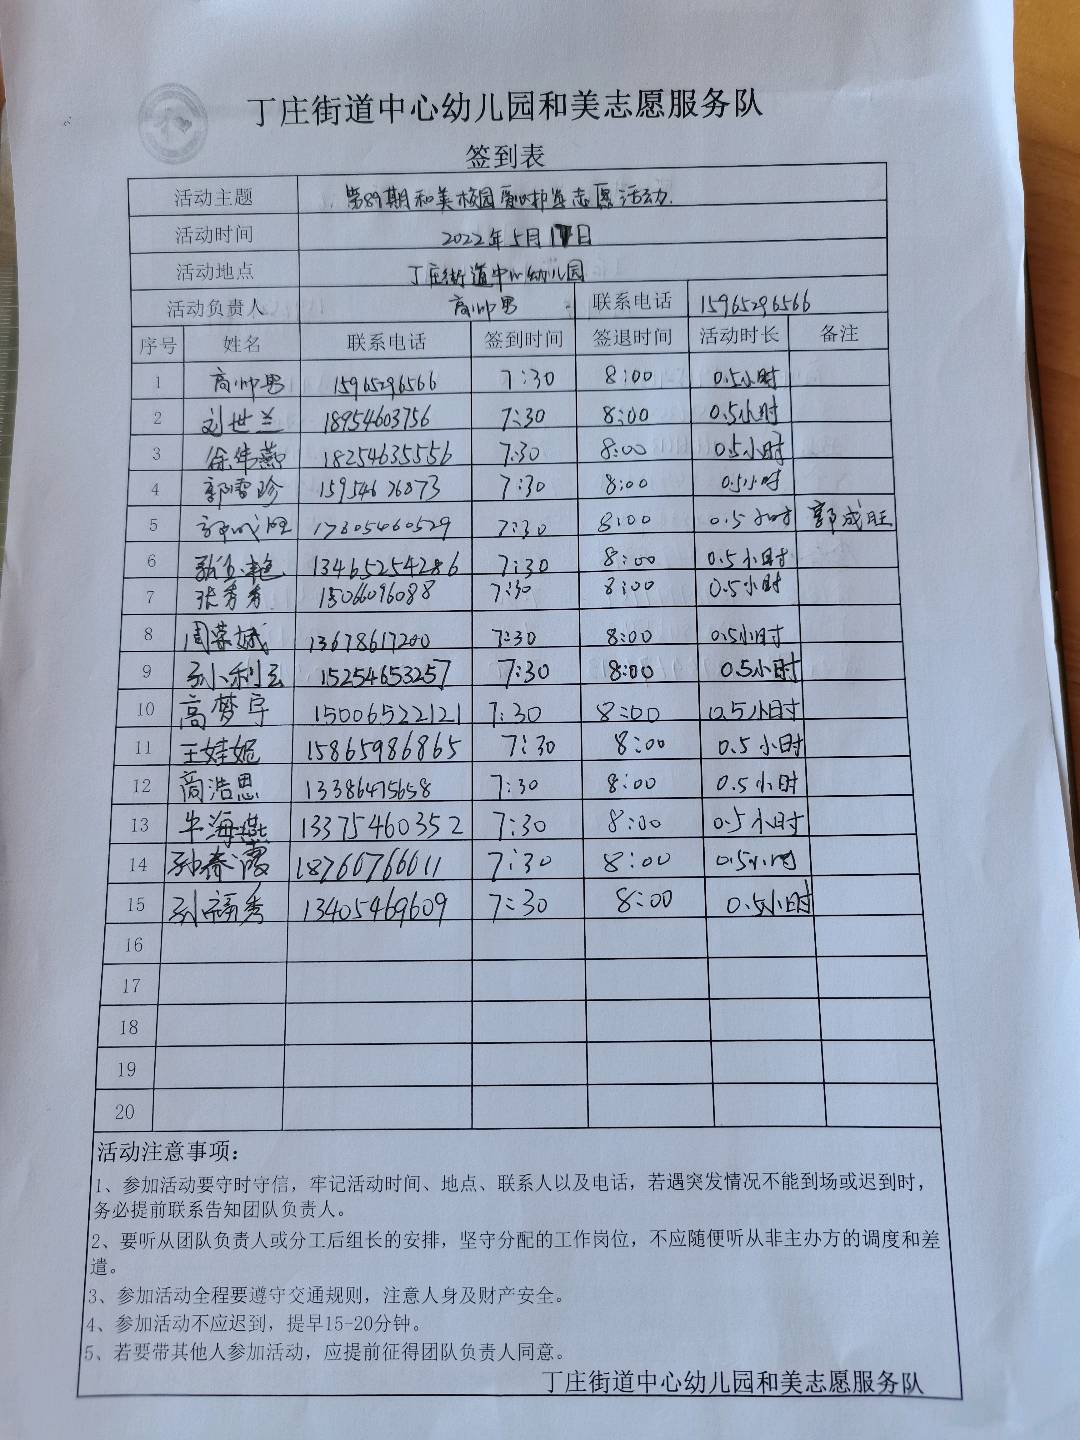 丁庄街道中心幼儿园和美志愿服务队
签到表
活动主题 第89期和美校园爱心护学志愿活动
活动时间 2022年5月日
活动地点 丁庄街道中心幼儿园
活动负责人 高帅男 联系电话 15965296566
序号 姓名 联系电话 签到时间 签退时间 活动时长 备注
1 高帅男 15965296566 7:30 8:00 0.5小时
2 刘世兰 18954603756 7:30 8:00 0.5小时
3 徐伟燕 18254635556 7:30 8:00 0.5小时
4 郭雪珍 15954626873 7:30 8:00 0.5小时
5 郭成旺 17305460529 7:30 8:00 0.5小时 郭成旺
6 13465254286 7:30 8:00 0.5小时
7 张秀秀 15066096088 7:30 8:00 0.5小时
8 周荣娥 13678617200 7:30 8:00 0.5小时
9 孙小利 15254653257 7:30 8:00 0.5小时
10 高梦宇 15006522121 7:30 8:00 0.5小时
11 王娃妮 15865986865 7:30 8:00 0.5小时
12 商浩思 13386475658 7:30 8:00 0.5小时
13 牛海燕 13375460352 7:30 8:00 0.5小时
14 孙春霞 18760766011 7:30 8:00 0.5小时
15 孙福秀 13405469609 7:30 8:00 0.5小时
16
17
18
19
20
活动注意事项：
1、参加活动要守时守信，牢记活动时间、地点、联系人以及电话，若遇突发情况不能到场或迟到时，
务必提前联系告知团队负责人。
2、要听从团队负责人或分工后组长的安排，坚守分配的工作岗位，不应随便听从非主办方的调度和差
遣。
3、参加活动全程要遵守交通规则，注意人身及财产安全。
4、参加活动不应迟到，提早15-20分钟。
5、若要带其他人参加活动，应提前征得团队负责人同意。
丁庄街道中心幼儿园和美志愿服务队